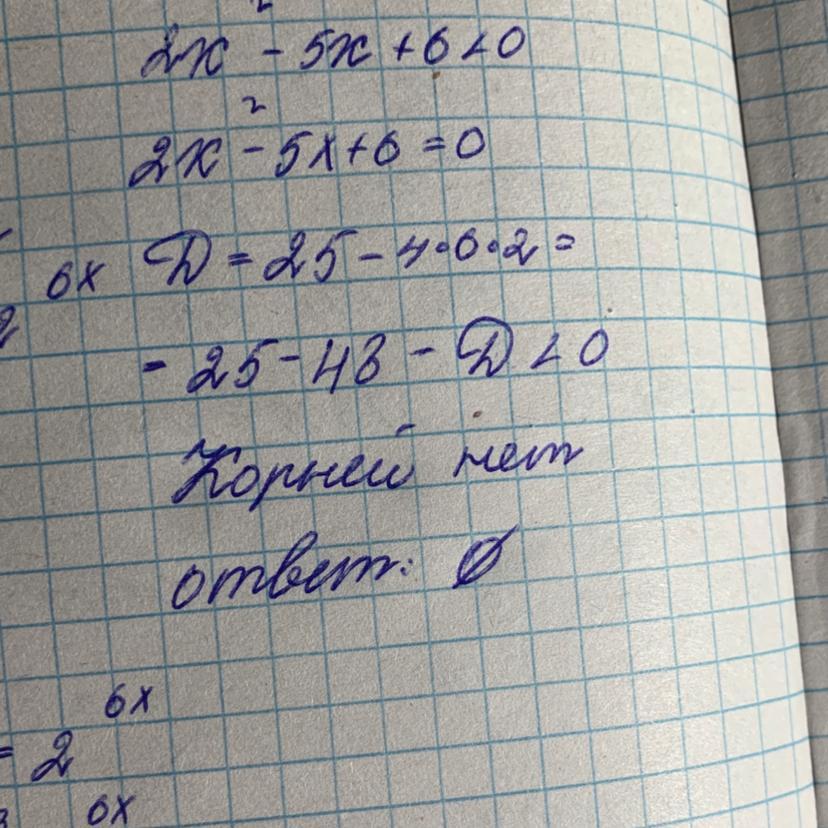 2x² - 5x + 6 < 0
2x² - 5x + 6 = 0
6x D = 25 - 4·6·2 =
2
- 25 - 48 - D < 0
Корней нет
ответ: Ø
6x
= 2
6x